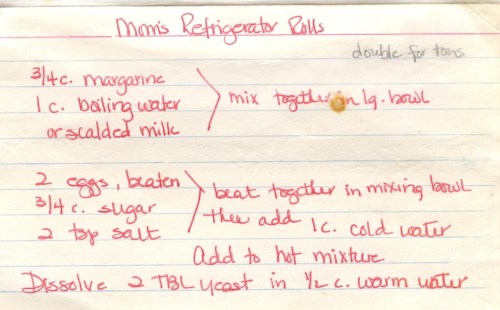 Mom's Refrigerator Rolls
double for tons
3/4 c. margarine
1 c. boiling water
or scalded milk
mix together in lg. bowl
2 eggs, beaten
3/4 c. sugar
2 tsp salt
beat together in mixing bowl
then add 1 c. cold water
Add to hot mixture
Dissolve 2 TBL yeast in 1/2 c. warm water